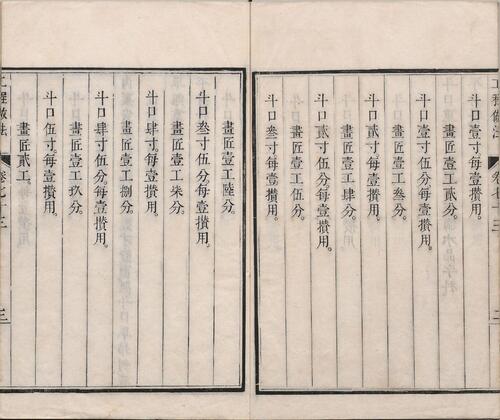 斗口壹寸。每壹攢用。
畫匠壹工貳分。
斗口壹寸伍分。每壹攢用。
畫匠壹工叁分。
斗口貳寸。每壹攢用。
畫匠壹工肆分。
斗口貳寸伍分。每壹攢用。
畫匠壹工伍分。
斗口叁寸。每壹攢用。
畫匠壹工陸分。
斗口叁寸伍分。每壹攢用。
畫匠壹工柒分。
斗口肆寸。每壹攢用。
畫匠壹工捌分。
斗口肆寸伍分。每壹攢用。
畫匠壹工玖分。
斗口伍寸。每壹攢用。
畫匠貳工。
工程做法
卷七十三
三